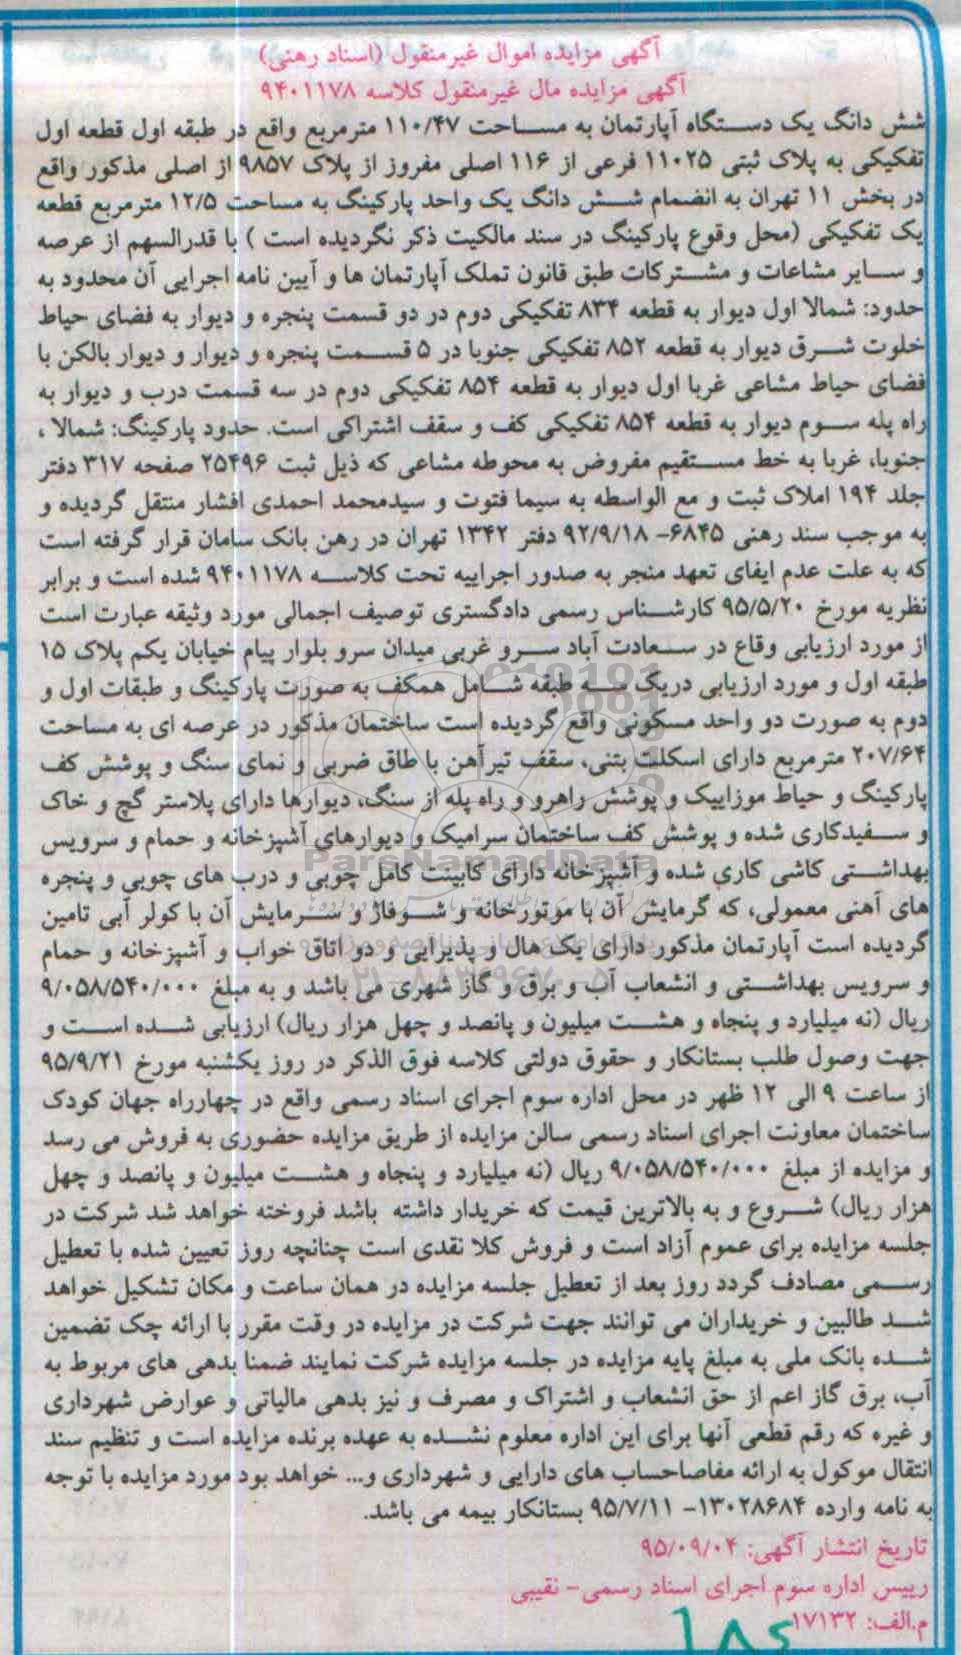 آگهی مزایده اموال غیرمنقول (اسناد رهنی)
آگهی مزایده مال غیرمنقول کلاسه ۹۴۰۱۱۷۸
شش دانگ یک دستگاه آپارتمان به مساحت ۱۱۰/۴۷ مترمربع واقع در طبقه اول قطعه اول
تفکیکی به پلاک ثبتی ۱۱۰۲۵ فرعی از ۱۱۶ اصلی مفروز از پلاک ۹۸۵۷ از اصلی مذکور واقع
در بخش ۱۱ تهران به انضمام شش دانگ یک واحد پارکینگ به مساحت ۱۲/۵ مترمربع قطعه
یک تفکیکی (محل وقوع پارکینگ در سند مالکیت ذکر نگردیده است ) با قدرالسهم از عرصه
و سایر مشاعات و مشترکات طبق قانون تملک آپارتمان ها و آیین نامه اجرایی آن محدود به
حدود: شمالا اول دیوار به قطعه ۸۳۴ تفکیکی دوم در دو قسمت پنجره و دیوار به فضای حیاط
خلوت شرق دیوار به قطعه ۸۵۲ تفکیکی جنوبا در ۵ قسمت پنجره و دیوار و دیوار بالکن با
فضای حیاط مشاعی غربا اول دیوار به قطعه ۸۵۴ تفکیکی دوم در سه قسمت درب و دیوار به
راه پله سوم دیوار به قطعه ۸۵۴ تفکیکی کف و سقف اشتراکی است. حدود پارکینگ: شمالا ،
جنوبا، غربا به خط مستقیم مفروض به محوطه مشاعی که ذیل ثبت ۲۵۴۹۶ صفحه ۳۱۷ دفتر
جلد ۱۹۴ املاک ثبت و مع الواسطه به سیما فتوت و سیدمحمد احمدی افشار منتقل گردیده و
به موجب سند رهنی ۶۸۴۵- ۹۲/۹/۱۸ دفتر ۱۳۴۲ تهران در رهن بانک سامان قرار گرفته است
که به علت عدم ایفای تعهد منجر به صدور اجراییه تحت کلاسه ۹۴۰۱۱۷۸ شده است و برابر
نظریه مورخ ۹۵/۵/۲۰ کارشناس رسمی دادگستری توصیف اجمالی مورد وثیقه عبارت است
از مورد ارزیابی وقاع در سعادت آباد سرو غربی میدان سرو بلوار پیام خیابان یکم پلاک ۱۵
طبقه اول و مورد ارزیابی دریگ سه طبقه شامل همکف به صورت پارکینگ و طبقات اول و
دوم به صورت دو واحد مسکونی واقع گردیده است ساختمان مذکور در عرصه ای به مساحت
۲۰۷/۶۴ مترمربع دارای اسکلت بتنی، سقف تیرآهن با طاق ضربی و نمای سنگ و پوشش کف
پارکینگ و حیاط موزاییک و پوشش راهرو و راه پله از سنگ، دیوارها دارای پلاستر گچ و خاک
و سفیدکاری شده و پوشش کف ساختمان سرامیک و دیوارهای آشپزخانه و حمام و سرویس
ParsNamadData
بهداشتی کاشی کاری شده و آشپزخانه دارای کابینت کامل چوبی و درب های چوبی و پنجره
های آهنی معمولی، که گرمایش آن با موتورخانه و شوفاژ و سرمایش آن با کولر آبی تامین
گردیده است آپارتمان مذکور دارای یک هال و پذیرایی و دو اتاق خواب و آشپزخانه و حمام
و سرویس بهداشتی و انشعاب آب و برق و گاز شهری می باشد و به مبلغ ۹/۰۵۸/۵۴۰/۰۰۰
ریال (نه میلیارد و پنجاه و هشت میلیون و پانصد و چهل هزار ریال) ارزیابی شده است و
جهت وصول طلب بستانکار و حقوق دولتی کلاسه فوق الذکر در روز یکشنبه مورخ ۹۵/۹/۲۱
از ساعت ۹ الی ۱۲ ظهر در محل اداره سوم اجرای اسناد رسمی واقع در چهارراه جهان کودک
ساختمان معاونت اجرای اسناد رسمی سالن مزایده از طریق مزایده حضوری به فروش می رسد
و مزایده از مبلغ ۹/۰۵۸/۵۴۰/۰۰۰ ریال (نه میلیارد و پنجاه و هشت میلیون و پانصد و چهل
هزار ریال) شروع و به بالاترین قیمت که خریدار داشته باشد فروخته خواهد شد شرکت در
جلسه مزایده برای عموم آزاد است و فروش کلا نقدی است چنانچه روز تعیین شده با تعطیل
رسمی مصادف گردد روز بعد از تعطیل جلسه مزایده در همان ساعت و مکان تشکیل خواهد
شد طالبین و خریداران می توانند جهت شرکت در مزایده در وقت مقرر با ارائه چک تضمین
شده بانک ملی به مبلغ پایه مزایده در جلسه مزایده شرکت نمایند ضمنا بدهی های مربوط به
آب، برق گاز اعم از حق انشعاب و اشتراک و مصرف و نیز بدهی مالیاتی و عوارض شهرداری
و غیره که رقم قطعی آنها برای این اداره معلوم نشده به عهده برنده مزایده است و تنظیم سند
انتقال موکول به ارائه مفاصاحساب های دارایی و شهرداری و... خواهد بود مورد مزایده با توجه
به نامه وارده ۱۳۰۲۸۶۸۴- ۹۵/۷/۱۱ بستانکار بیمه می باشد.
تاریخ انتشار آگهی: ۹۵/۰۹/۰۴
رییس اداره سوم اجرای اسناد رسمی- نقیبی
م.الف: ۱۷۱۳۲